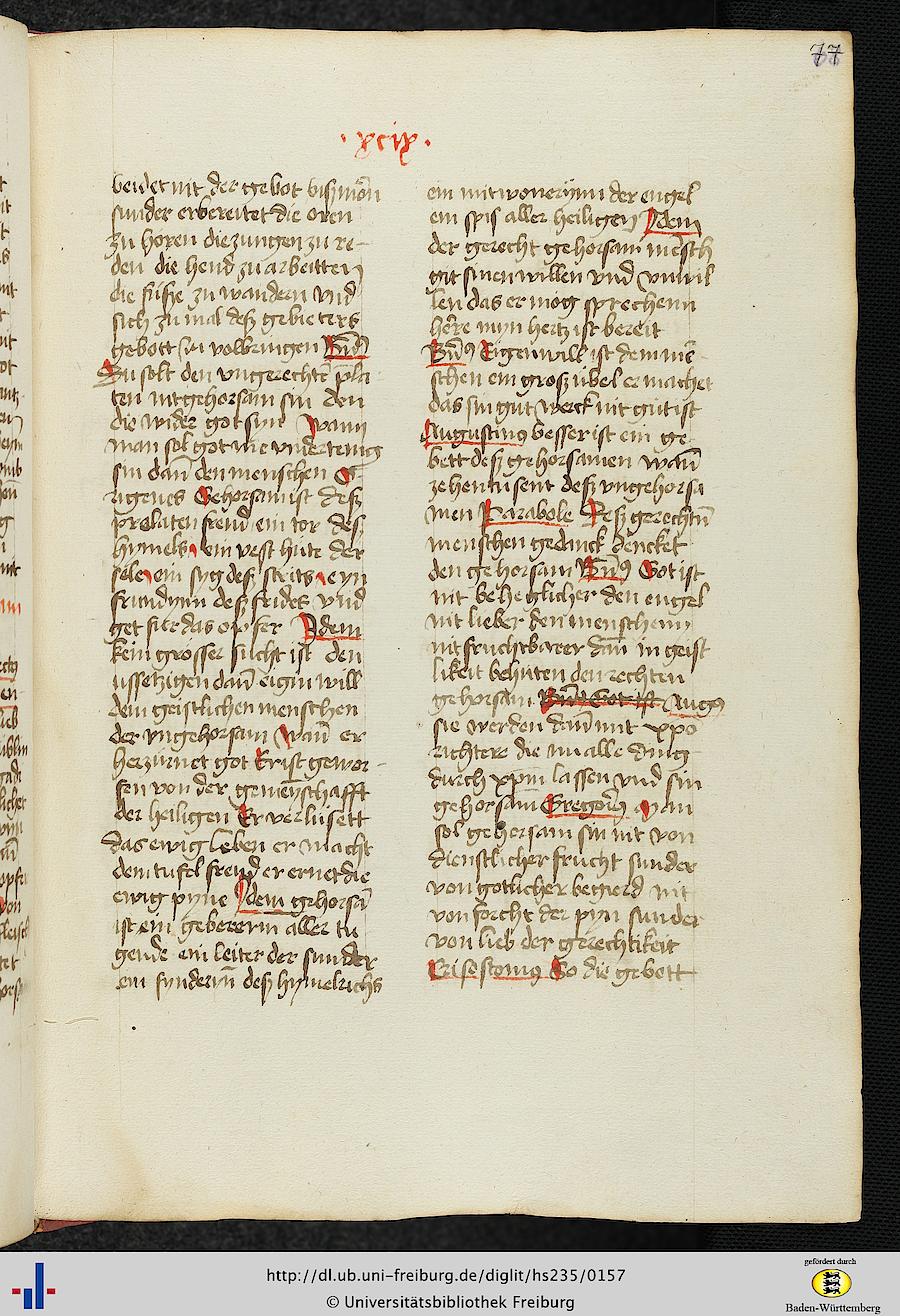 77
· xcix ·
beidet nit der gebot bisz mōn
sunder er bereitet die oren
zu horen die zungen zu re-
den die hend zu arbeitten
die füsze zu wandern vnd
sich zu mal desz gebieters
gebott zu volbringen Bn̄dꝰ
Du solt den vngerechtē p̄la
ten nit gehorsam sin den
die wider got sint Wann
man sol got me vndertenig
sin dan̄ den menschen O-
rigenes Gehorsam ist desz
prelaten freud ein tor desz
hymels ein vest hüte der
sele ein syg desz strits eyn
frundynn desz frides vnd
das opfer Idem
kein grosser sucht ist den
ussetzigen dan̄ eigin will
dem geistlichen menschen
der vngehorsam Wan̄ er
herzürnet got Er ist gewor-
fen von der gemeynschafft
der heiligen Er verlüsett
das ewig leben er macht
dem tufel freud er ernet die
ewig pyne Idem gehorsā
ist ein gebererin aller tu
gende ein leiter der sunder
ein fynderyn̄ desz hymelrichs
ein mitwonerynn der engel
ein spis aller heiligen Idem
der gerecht gehorsam mēsch
git sinen willen vnd vnwil
len das er mog sprechenn
herre myn hertz ist bereit
Bn̄dꝰ Eigen will ist dem mē-
schen ein grosz übel er machet
das sin gut werck nit gut ist
Augustinꝰ besser ist ein ge-
bett desz gehorsamen wan̄
zehentusent desz vngehorsa
men Parabole Desz gerechtn̄
menschen gedanck dencket
den gehorsam Bn̄dꝰ Got ist
nit beheglicher den engel
nit lieber den menschenn
nit fruchtbarer dan̄ in geist
likeit behüten den rechten
gehorsam Bn̄dꝰ Got ist Augꝰ
sie werden dan̄ mit xpo
richtere die nu alle ding
durch xpm̄ lassen vnd sin
gehorsam Gregoriꝰ Man
sol gehorsam sin nit von
dienstlicher frucht sunder
von gotlicher begerd nit
von forcht der pyn sunder
von lieb der gerechtikeit
Crisestomꝰ So die gebott
http://dl.ub.uni-freiburg.de/diglit/hs235/0157
© Universitätsbibliothek Freiburg
gefördert durch
Baden-Württemberg